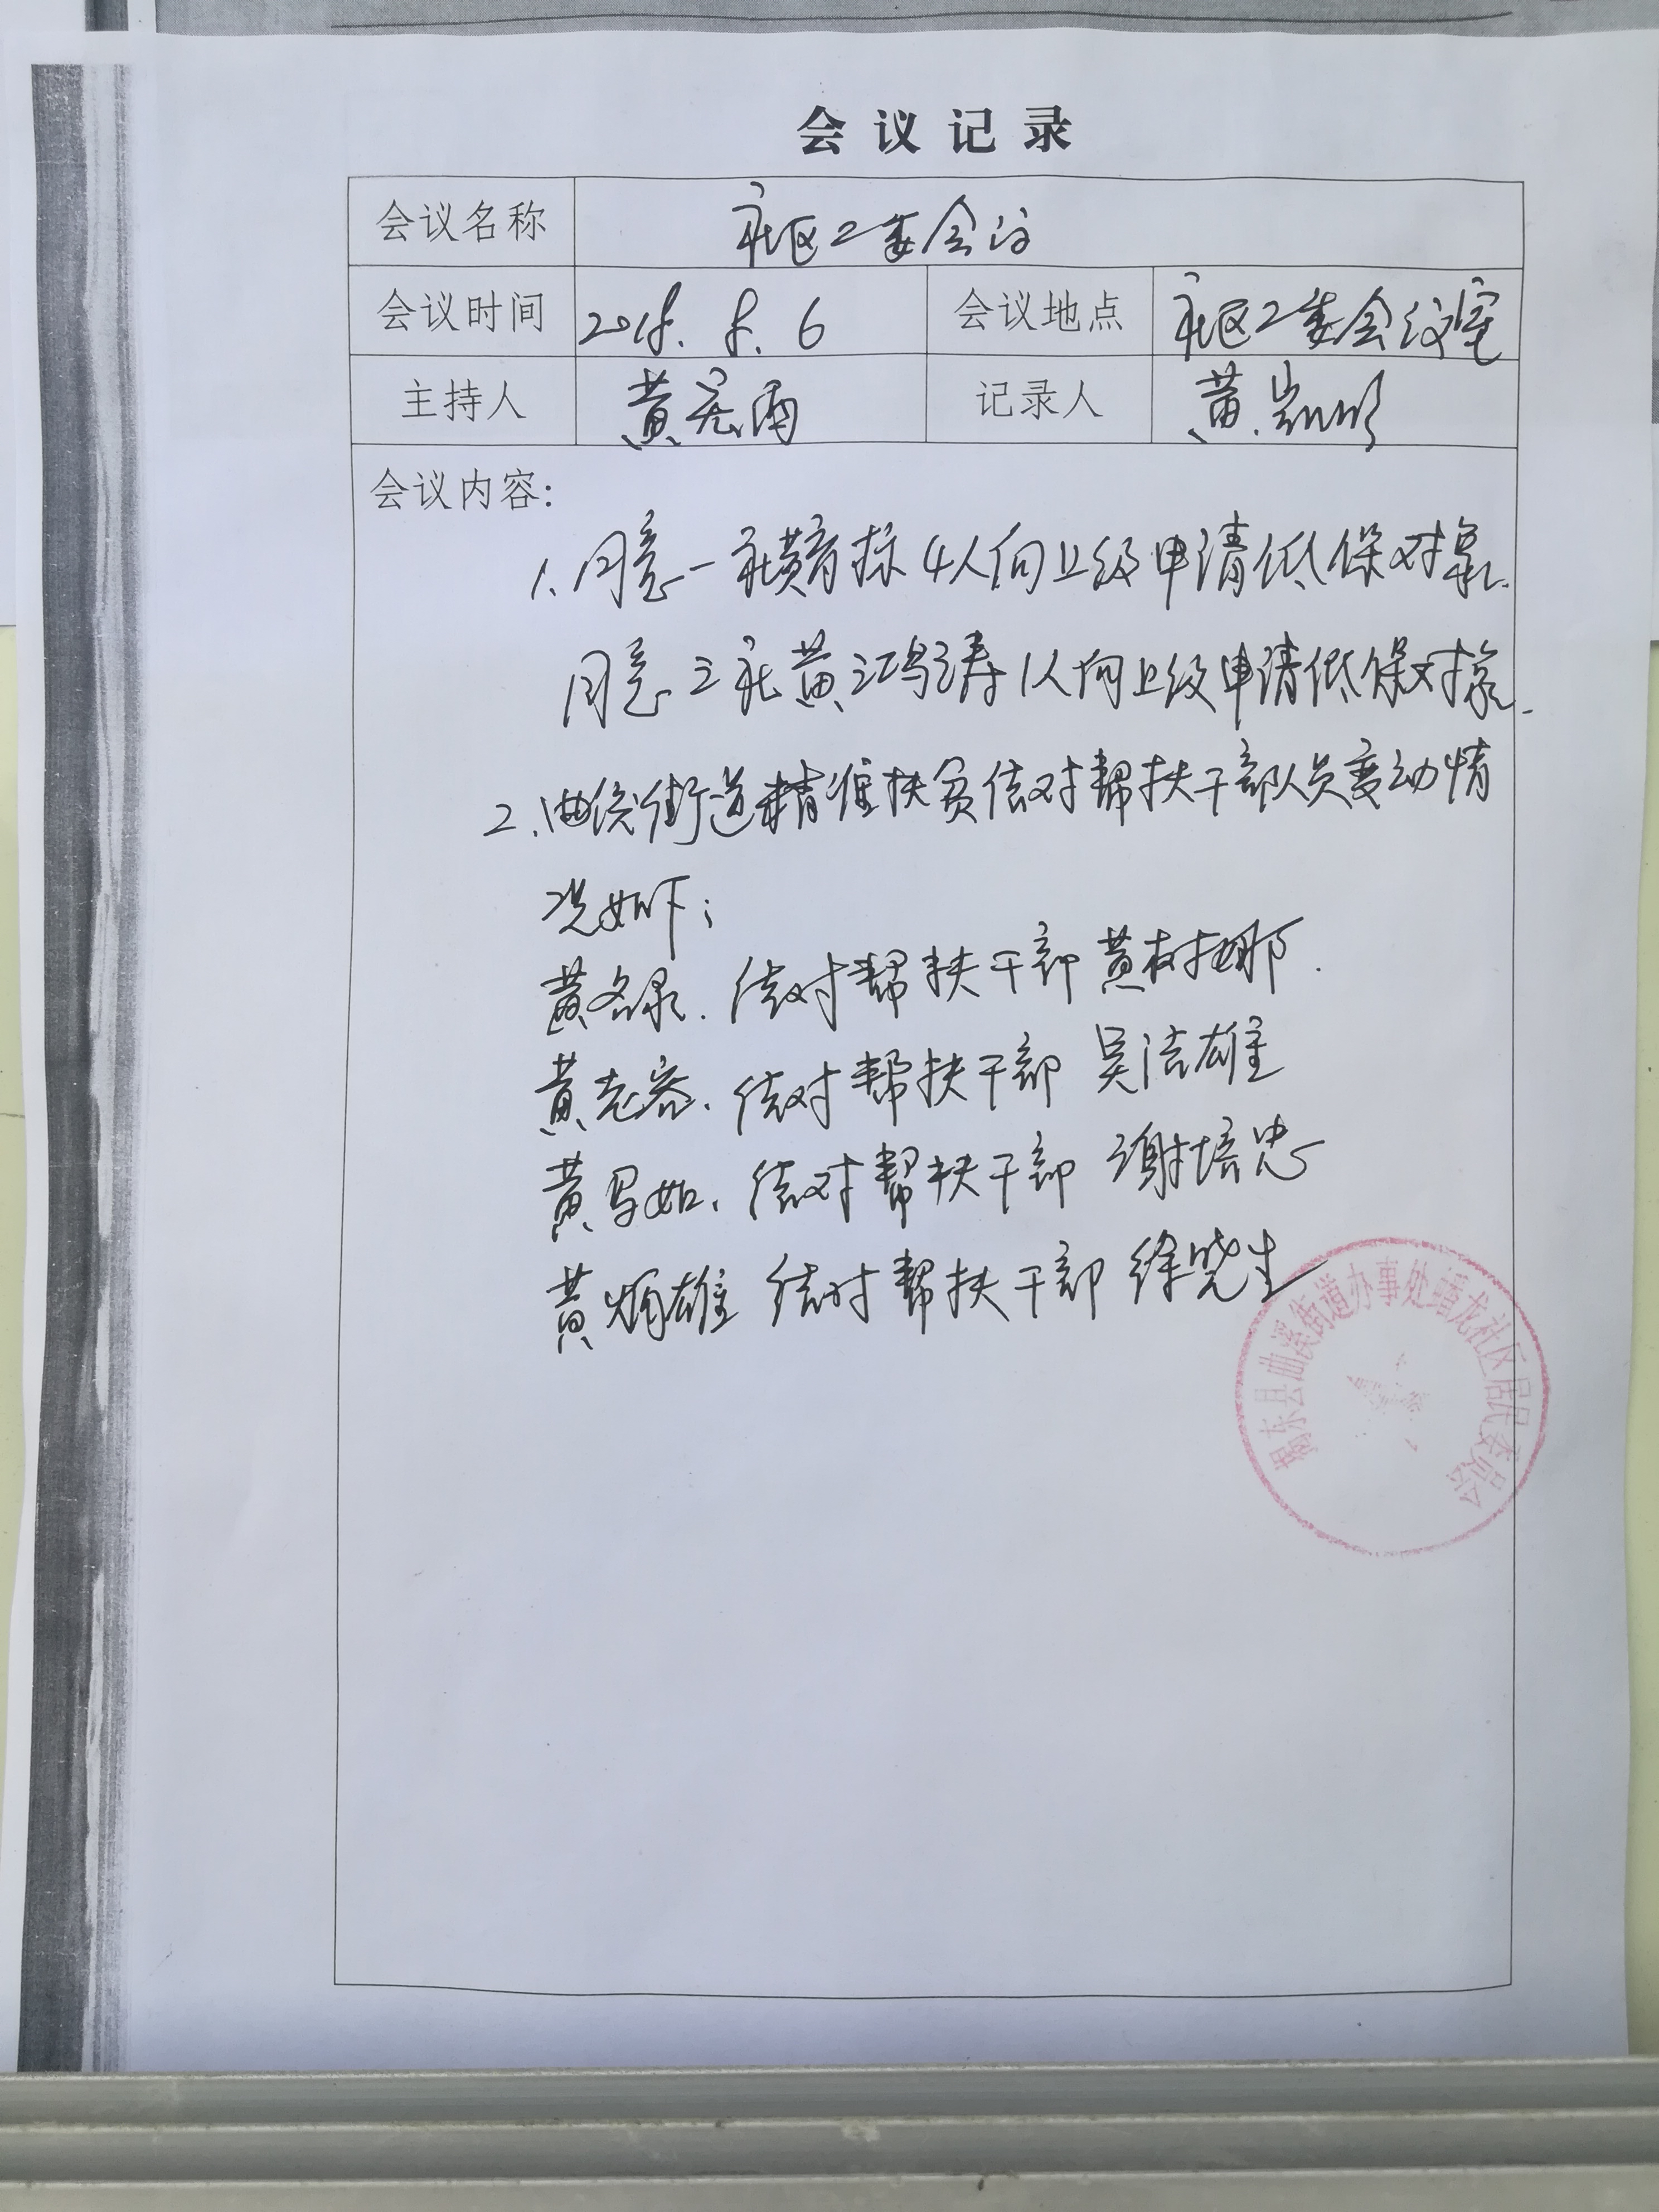 会议记录
会议名称 社区二委会议
会议时间 2018.8.6 会议地点 社区二委会议室
主持人 黄 记录人 黄
会议内容:
1.同意一社黄育标4人向上级申请低保对象.
同意三社黄鸿涛1人向上级申请低保对象.
2.曲溪街道精准扶贫结对帮扶干部队员变动情
况如下;
黄名录.结对帮扶干部黄树娜.
黄志容.结对帮扶干部 吴洁雄
黄 如.结对帮扶干部 谢培忠
黄炳雄 结对帮扶干部 徐晓生
揭东县曲溪街道办事处蟠龙社区居民委员会